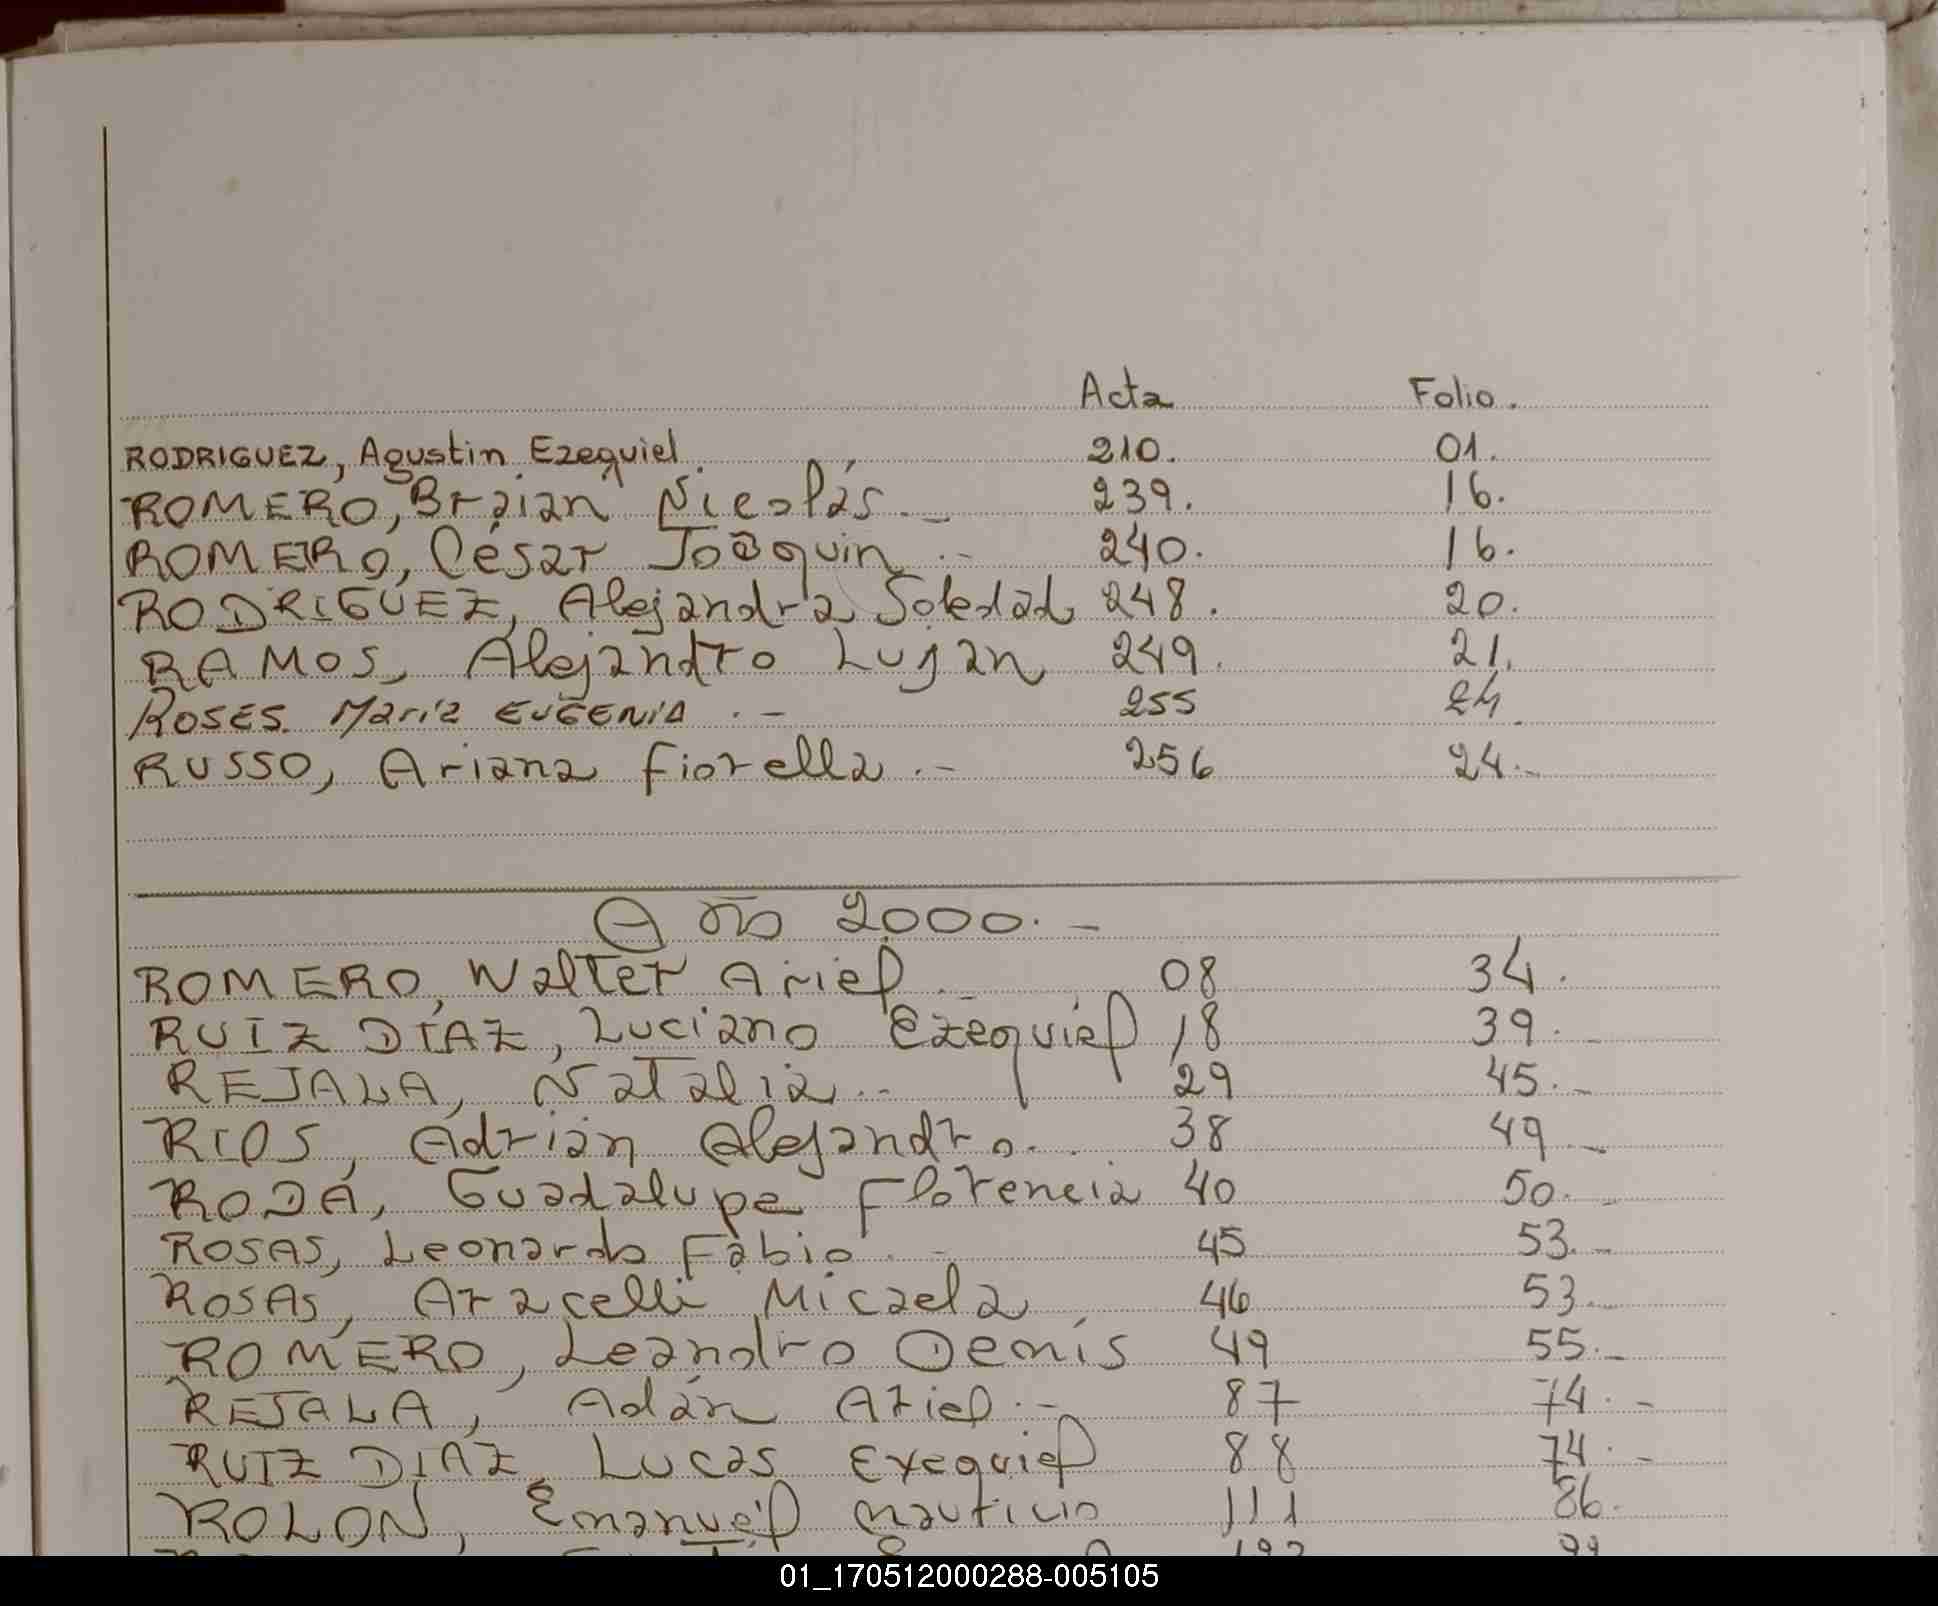 Acta Folio.
RODRIGUEZ, Agustin Ezequiel. 210. 01.
ROMERO, Braian Nicolás.- 239. 16.
ROMERO, César Joaquin.- 240. 16.
RODRIGUEZ, Alejandra Soledad 248. 20.
RAMOS, Alejandro Luján 249. 21.
ROSES. Maria EUGENIA.- 255 24.
RUSSO, Ariana Fiorella.- 256 24.-
Año 2.000.-
ROMERO, Walter Ariel.- 08 34.
RUIZ DÍAZ, Luciano Ezequiel 18 39.-
REJALA, Natalia.- 29 45.-
RIOS, Adrián Alejandro. 38 49.-
RODA, Guadalupe Florencia 40 50.-
ROSAS, Leonardo Fabio.- 45 53.-
ROSAS, Aracelli Micaela 46 53.-
ROMERO, Leandro Denis 49 55.-
REJALA, Adán Ariel.- 87 74.-
RUIZ DIAZ, Lucas Exequiel 88 74.-
ROLON, Emanuel Mauricio 111 86.
01_170512000288-005105